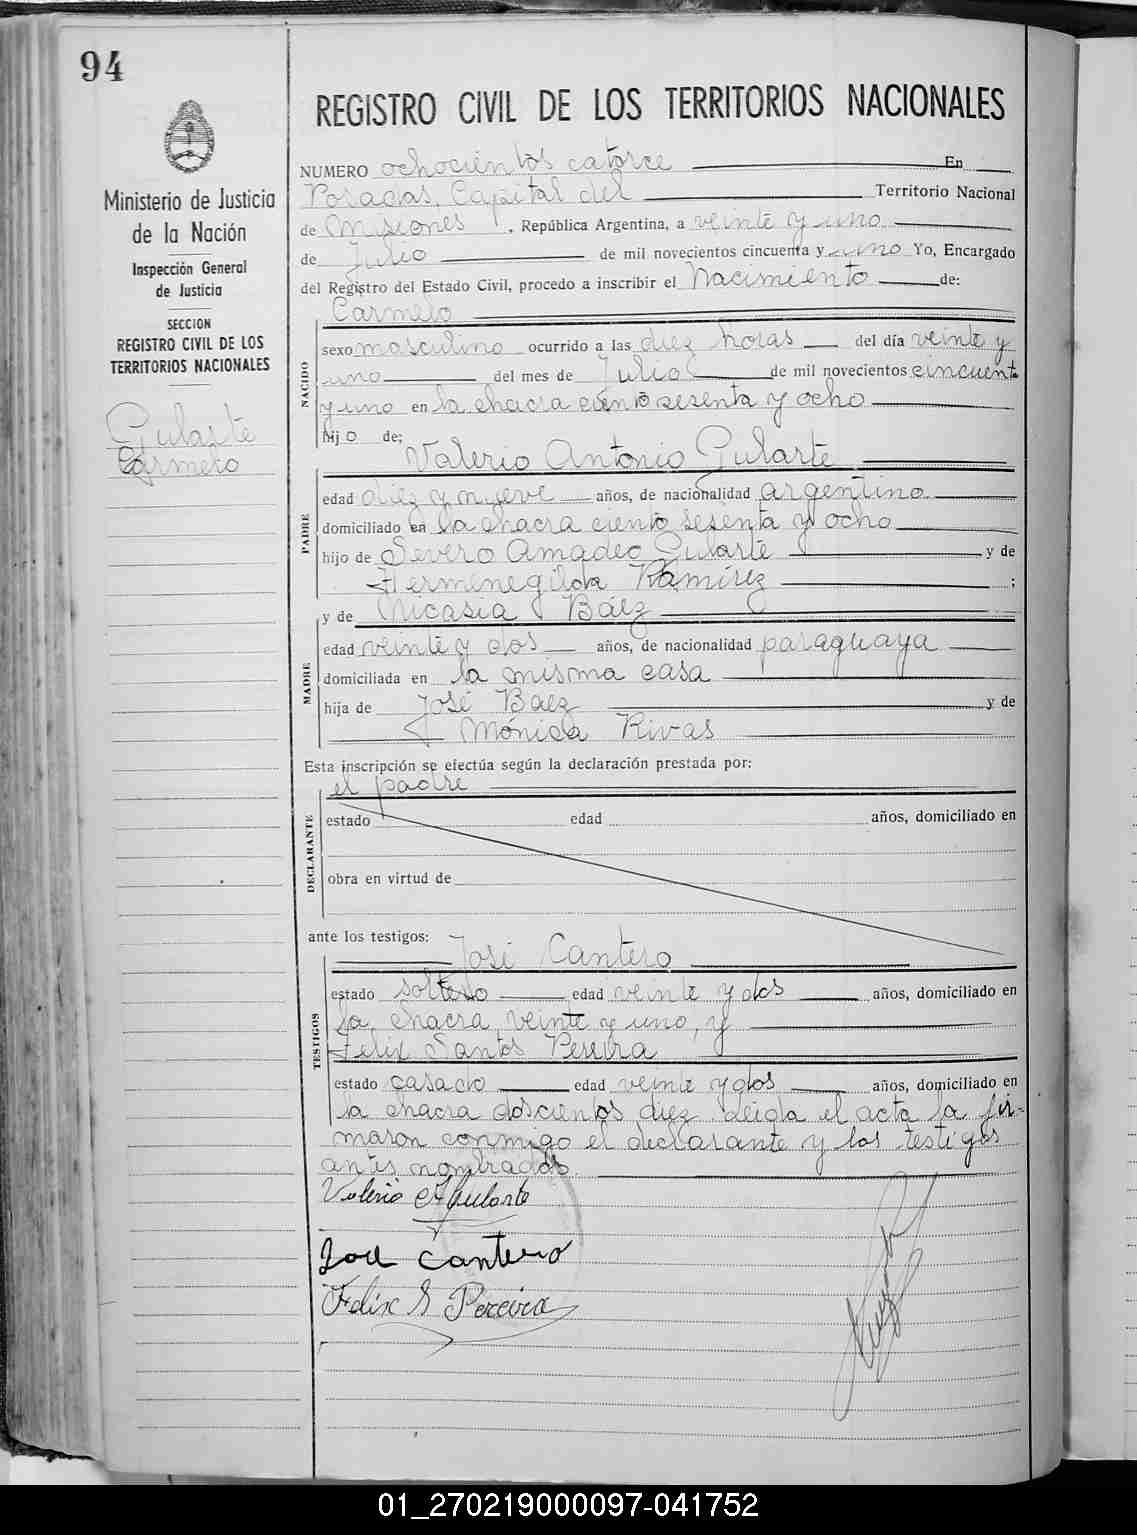 94
REGISTRO CIVIL DE LOS TERRITORIOS NACIONALES
Ministerio de Justicia
de la Nación
Inspección General
de Justicia
SECCION
REGISTRO CIVIL DE LOS
TERRITORIOS NACIONALES
Gularte
Carmelo
NUMERO ochocientos catorce En
Posadas, Capital del Territorio Nacional
de Misiones, República Argentina, a veinte y uno
de Julio de mil novecientos cincuenta y uno Yo, Encargado
del Registro del Estado Civil, procedo a inscribir el Nacimiento de:
Carmelo
NACIDO
sexo masculino ocurrido a las diez horas del día veinte y
uno del mes de Julio de mil novecientos cincuenta
y uno en la chacra ciento sesenta y ocho
hijo de:
Valerio Antonio Gularte
PADRE
edad diez y nueve años, de nacionalidad argentino
domiciliado en la chacra ciento sesenta y ocho
hijo de Severo Amadeo Gularte y de
Hermenegilda Ramírez ;
y de Nicasia Báez
MADRE
edad veinte y dos años, de nacionalidad paraguaya
domiciliada en la misma casa
hija de José Baez y de
Mónica Rivas
Esta inscripción se efectúa según la declaración prestada por:
el padre
DECLARANTE
estado edad años, domiciliado en
obra en virtud de
ante los testigos: José Cantero
TESTIGOS
estado soltero edad veinte y dos años, domiciliado en
la chacra veinte y uno, y
Felix Santos Pereira
estado casado edad veinte y dos años, domiciliado en
la chacra doscientos diez leída el acta la fir-
maron conmigo el declarante y los testigos
antes nombrados.
Valerio A Gularte
José Cantero
Felix S Pereira
01_270219000097-041752